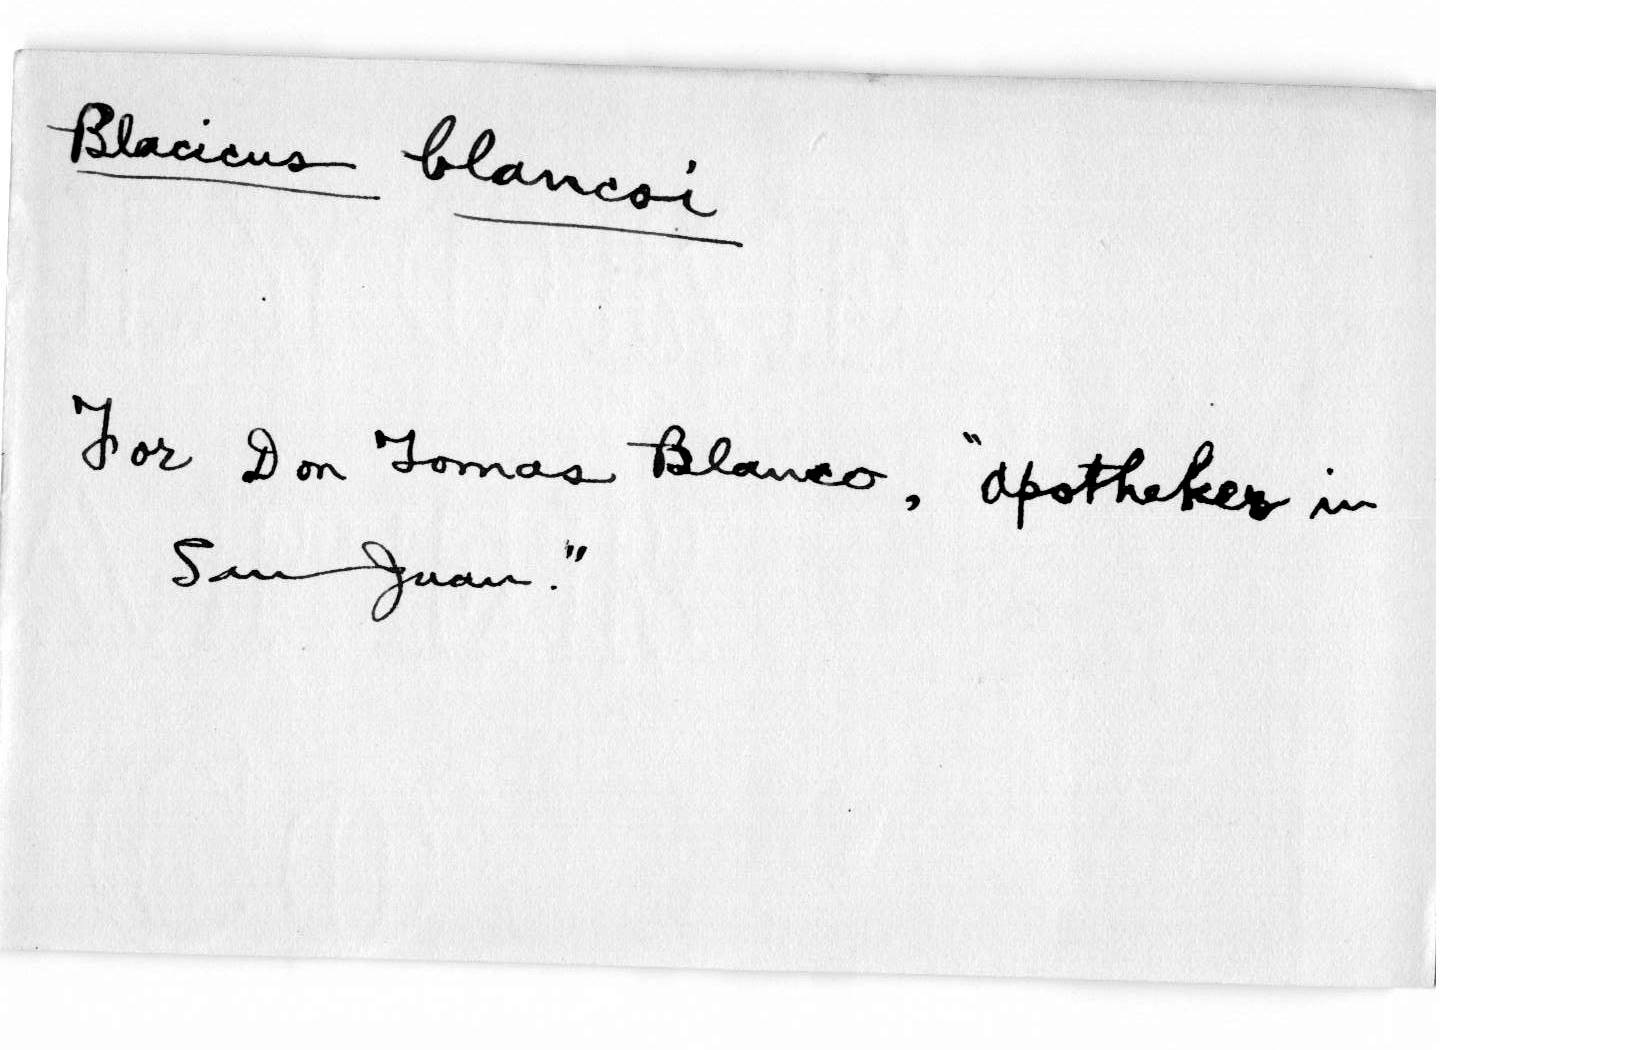 Blacicus blancoi
For Don Tomas Blanco, "Apotheker in
San Juan."